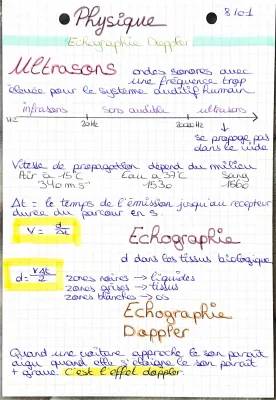 Physique
8/01
Echographie Doppler
Ultrasons ondes sonores avec
une fréquence trop
élevée pour le système auditif humain
infrasons sons audible ultrasons
Hz 20Hz 20000Hz
se propage pas
dans le vide
Vitesse de propagation dépend du milieu
Air à 15°C Eau à 37°C Sang
340 m.s⁻¹ 1530 1560
Δt = le temps de l'émission jusqu'au récepteur
durée du parcour en s.
V = d/Δt
Echographie
d dans les tissus biologique
d = VΔt/2
zones noires → liquides
zones grises → tissus
zones blanches → os
Echographie
Doppler
Quand une voiture approche le son parait
aigu quand elle s'éloigne le son parait
+ grave. C'est l'effet doppler.